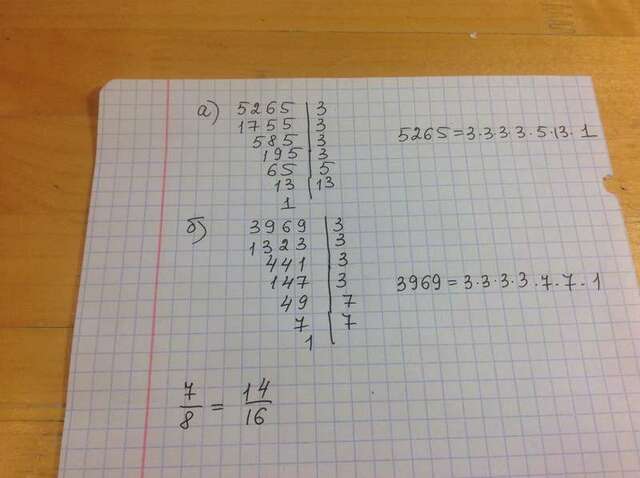 а) 5265 | 3
1755 | 3
585 | 3
195 | 3
65 | 5
13 | 13
1
5265 = 3·3·3·3·5·13·1
б) 3969 | 3
1323 | 3
441 | 3
147 | 3
49 | 7
7 | 7
1
3969 = 3·3·3·3·7·7·1
7/8 = 14/16